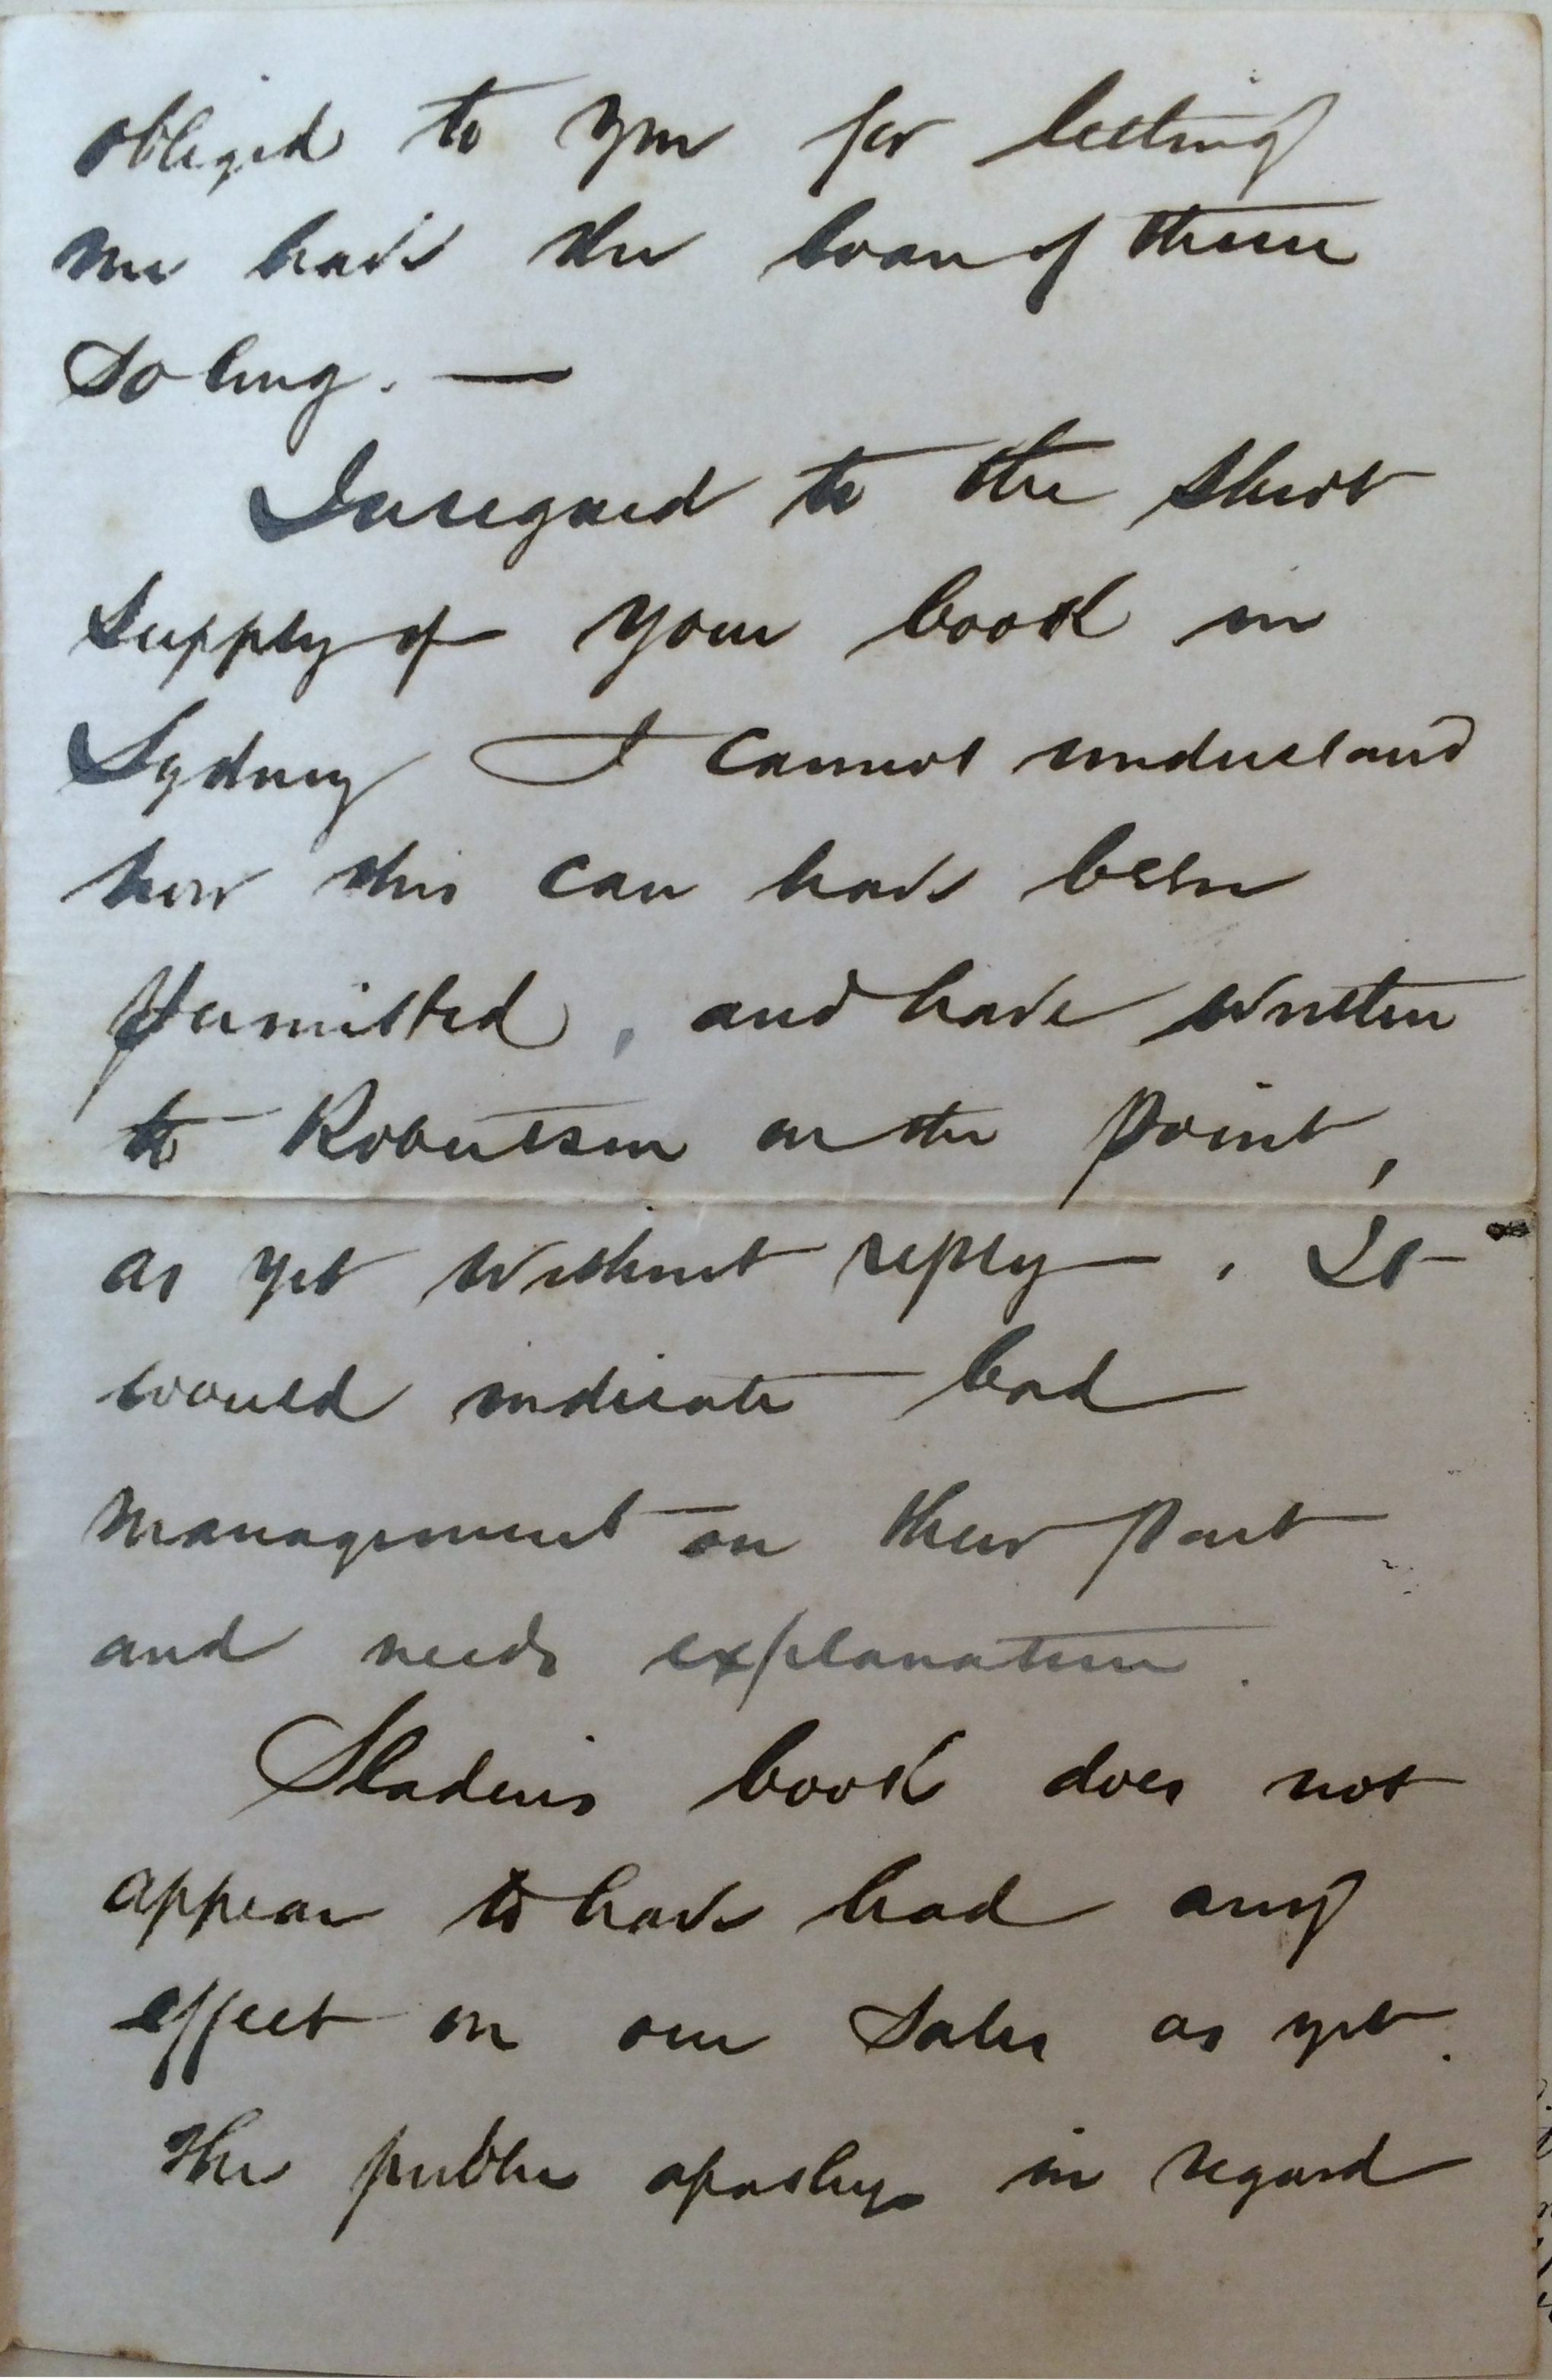 obliged to you for letting
me have the loan of them
so long. —
In regard to the short
supply of your book in
Sydney I cannot understand
how this can have been
permitted, and have written
to Robertson on the point,
as yet without reply. It
would indicate bad
management on their part
and needs explanation.
Sladen's book does not
appear to have had any
effect on our sales as yet.
The public apathy in regard